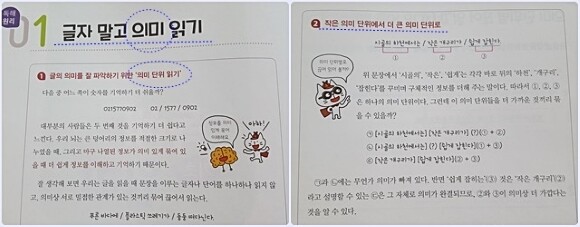 독해
원리
01 글자 말고 의미 읽기
1 글의 의미를 잘 파악하기 위한 '의미 단위 읽기'
다음 중 어느 쪽이 숫자를 기억하기 더 쉬울까?
0215770902 02 / 1577 / 0902
대부분의 사람들은 두 번째 것을 기억하기 더 쉽다고
느낀다. 우리 뇌는 큰 덩어리의 정보를 적절한 크기로 나
누었을 때, 그리고 마구 나열된 정보가 의미 있게 묶여 있
을 때 더 쉽게 정보를 이해하고 기억하기 때문이다.
정보를 의미
있게 묶어
이해해요
아하!
잘 생각해 보면 우리는 글을 읽을 때 문장을 이루는 글자나 단어를 하나하나 읽지 않
고, 의미상 서로 밀접한 관계가 있는 것끼리 묶어 끊어서 읽는다.
푸른 바다에 / 플라스틱 쓰레기가 / 둥둥 떠다닌다.
2 작은 의미 단위에서 더 큰 의미 단위로
시골의 하천에서는 / 작은 개구리가 / 쉽게 잡힌다.
① ② ③
의미 단위별로
끊어 읽어 볼까?
위 문장에서 '시골의', '작은', '쉽게'는 각각 바로 뒤의 '하천', '개구리',
'잡힌다'를 꾸미며 구체적인 정보를 더해 주는 말이다. 따라서 ①, ②, ③
은 하나의 의미 단위이다. 그런데 이 의미 단위들을 더 가까운 것끼리 묶
을 수 있을까?
㉠ [시골의 하천에서는] [작은 개구리가] (① + ②)
㉡ [시골의 하천에서는] [쉽게 잡힌다] (① + ③)
㉢ [작은 개구리가] [쉽게 잡힌다] (② + ③)
㉠과 ㉡에는 무언가 의미가 빠져 있다. 반면 '쉽게 잡히는(③) 것은 '작은 개구리(②)'라
고 설명할 수 있는 ㉢은 그 자체로 의미가 완결되므로, ②와 ③이 의미상 더 가깝다는
것을 알 수 있다.